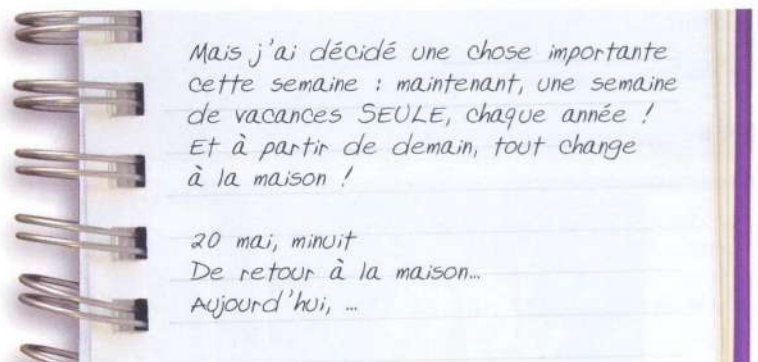 Mais j'ai décidé une chose importante
cette semaine : maintenant, une semaine
de vacances SEULE, chaque année !
Et à partir de demain, tout change
à la maison !
20 mai, minuit
De retour à la maison...
Aujourd'hui, ...